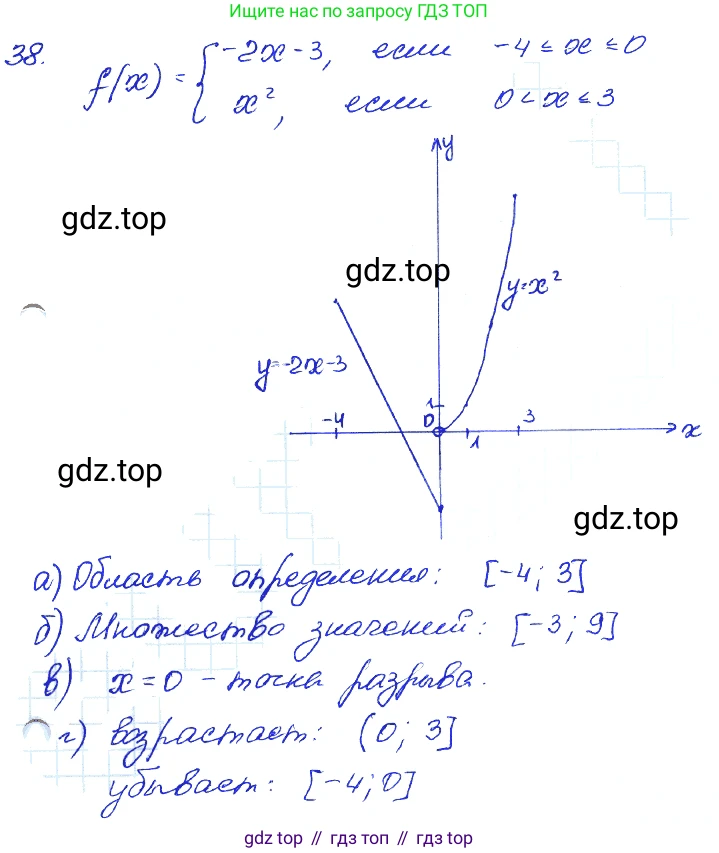 Ищите нас по запросу ГДЗ ТОП
38.
f(x) = { -2x - 3, если -4 ≤ x ≤ 0
x², если 0 < x ≤ 3
y
gdz.top
gdz.top
y=x²
y=-2x-3
1
-4
0
3
x
1
gdz.top
gdz.top
а) Область определения: [-4; 3]
б) Множество значений: [-3; 9]
в) x = 0 - точка разрыва.
г) возрастает: (0; 3]
убывает: [-4; 0]
gdz top // гдз топ // гдз.top